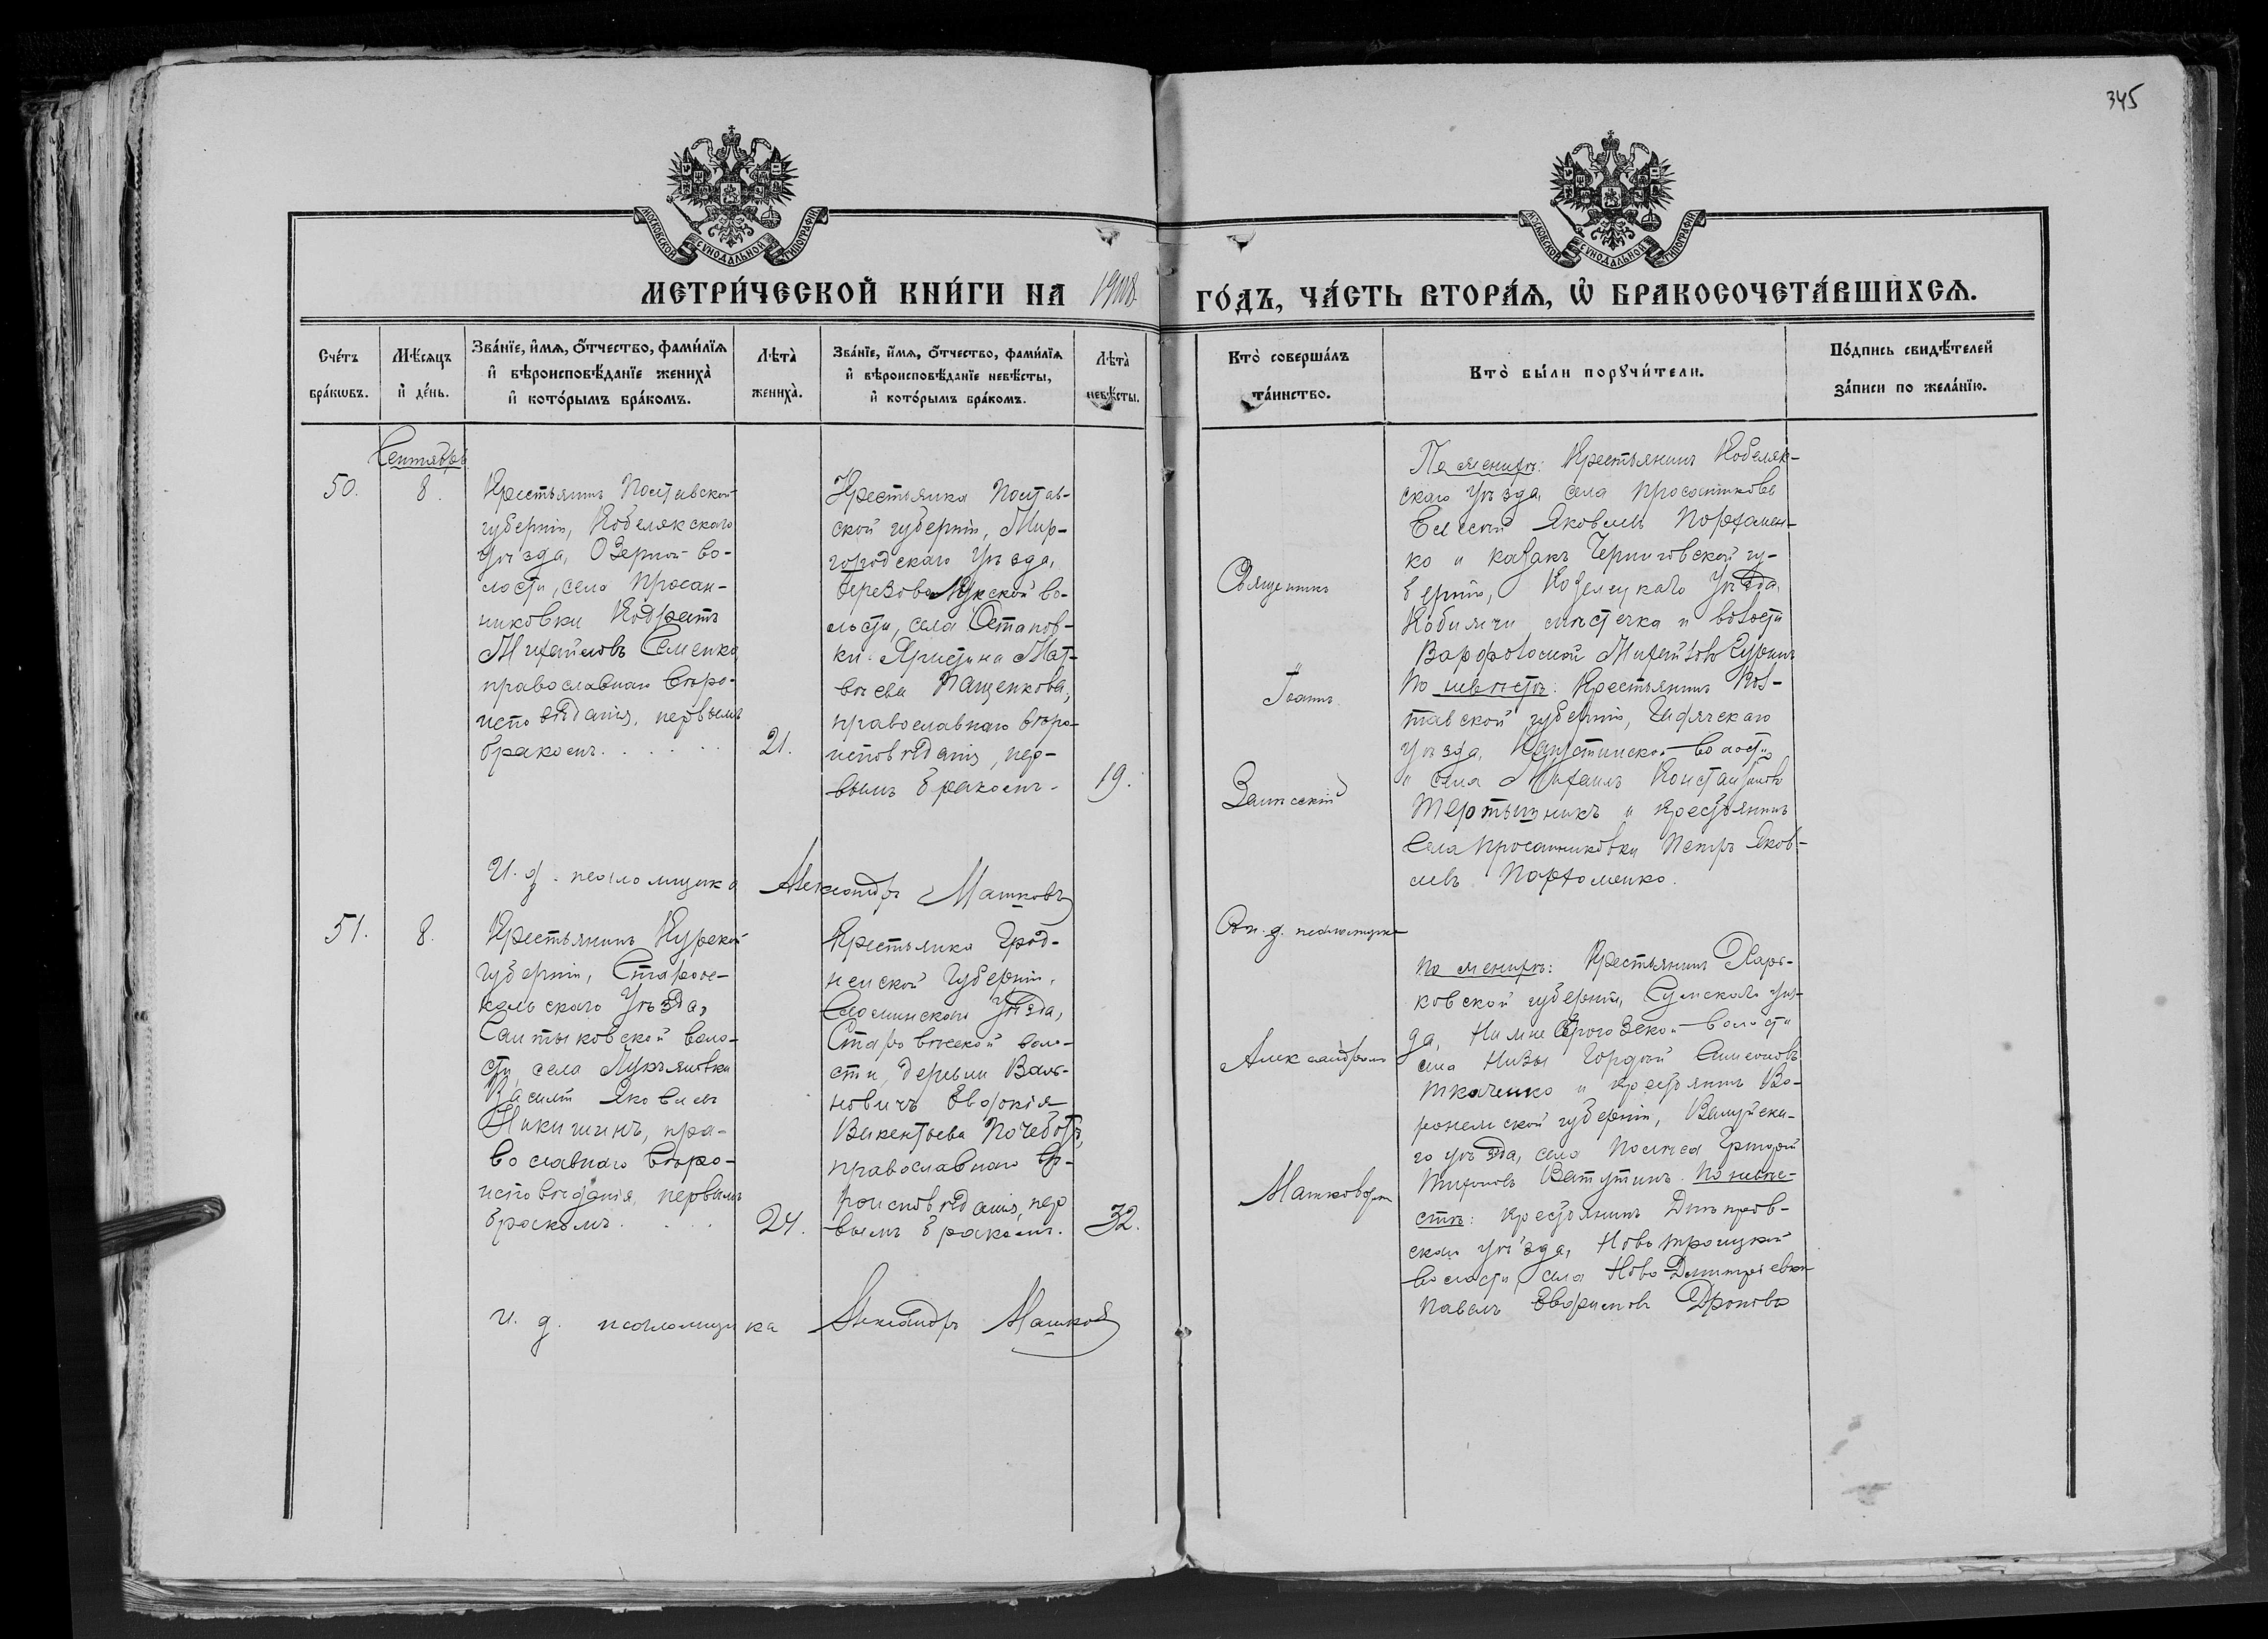 345
МОСКОВСКОЙ СУНОДАЛЬНОЙ ТИПОГРАФІИ
МОСКОВСКОЙ СУНОДАЛЬНОЙ ТИПОГРАФІИ
МЕТРИ́ЧЕСКОЙ КНИ́ГИ НА 1908
ГО́ДЪ, ЧА́СТЬ ВТОРА́Ѧ, Ѡ БРАКОСОЧЕТА́ВШИХСѦ.
Сче́тъ
бра́кωвъ.
Мѣ́сяцъ
и де́нь.
Зва́нїе, и́мѧ, о́тчество, фами́лїѧ
и вѣроисповѣ́данїе жениха̀
и кото́рымъ бра́комъ.
Лѣта̀
жениха̀.
Зва́нїе, и́мѧ, о́тчество, фами́лїѧ
и вѣроисповѣ́данїе невѣ́сты,
и кото́рымъ бра́комъ.
Лѣта̀
невѣ́сты.
Кто̀ соверша́лъ
та́инство.
Кто̀ бы́ли порꙋчи́тели.
По́дпись свидѣ́телей
за́писи по жела́нїю.
Сентябрь
50.
8.
Крестьянинъ Полтавской
губерніи, Кобелякскаго
уѣзда, Озерной во-
лости, села Просян-
никовки Кодратъ
Михайловъ Семенко,
православнаго вѣро-
исповѣданія, первымъ
бракомъ.
21.
Крестьянка Полтав-
ской губерніи, Мир-
городскаго уѣзда,
Березово Лукской во-
лости, села Остапов-
ки Христина Мат-
вѣева Пащенкова,
православнаго вѣро-
исповѣданія, пер-
вымъ бракомъ.
19.
Священникъ
Іоаннъ
По женихѣ: Крестьянинъ Кобеляк-
скаго уѣзда, села Просянниковки
Яковлевъ Порхомен-
ко и казакъ Черниговской гу-
берніи, Козелецкаго уѣзда,
мѣстечка и волости
Михайловъ
По невѣстѣ: Крестьянинъ Пол-
тавской губерніи, Гадячскаго
уѣзда, Капустинской волости
и села Михаилъ Константиновъ
Тертышникъ и крестьянинъ
села Просянниковки Петръ Яков-
левъ Порхоменко.
И. д. псаломщика Александръ Машковъ
51.
8.
Крестьянинъ Курской
губерніи, Старо-ос-
кольскаго уѣзда,
Салтыковской воло-
сти, села Лукьяновки
Василій Яковлевъ
Никишинъ, пра-
вославнаго вѣро-
исповѣданія, первымъ
бракомъ.
24.
Крестьянка Грод-
ненской губерніи,
Слонимскаго уѣзда,
Старовѣсской воло-
сти, деревни Валь-
новичъ Евдокія
Викентьева
православнаго вѣ-
роисповѣданія, пер
вымъ бракомъ.
32.
Съ и. д. псаломщика
Александромъ
Машковымъ
По женихѣ: Крестьянинъ Харь-
ковской губерніи, Сумскаго уѣз-
да, Нижне Сыроватской волости
села Низы Гордѣй Симеоновъ
Ткаченко и крестьянинъ Во-
ронежской губерніи, Валуйска-
го уѣзда, села Григорій
Тихоновъ Ватутинъ. По невѣ-
стѣ: крестьянинъ Днѣпров-
скаго уѣзда, Ново Троицкой
волости, села Ново Дмитріевки
Павелъ Евфимовъ Дроновъ
И. д. псаломщика Александръ Машковъ